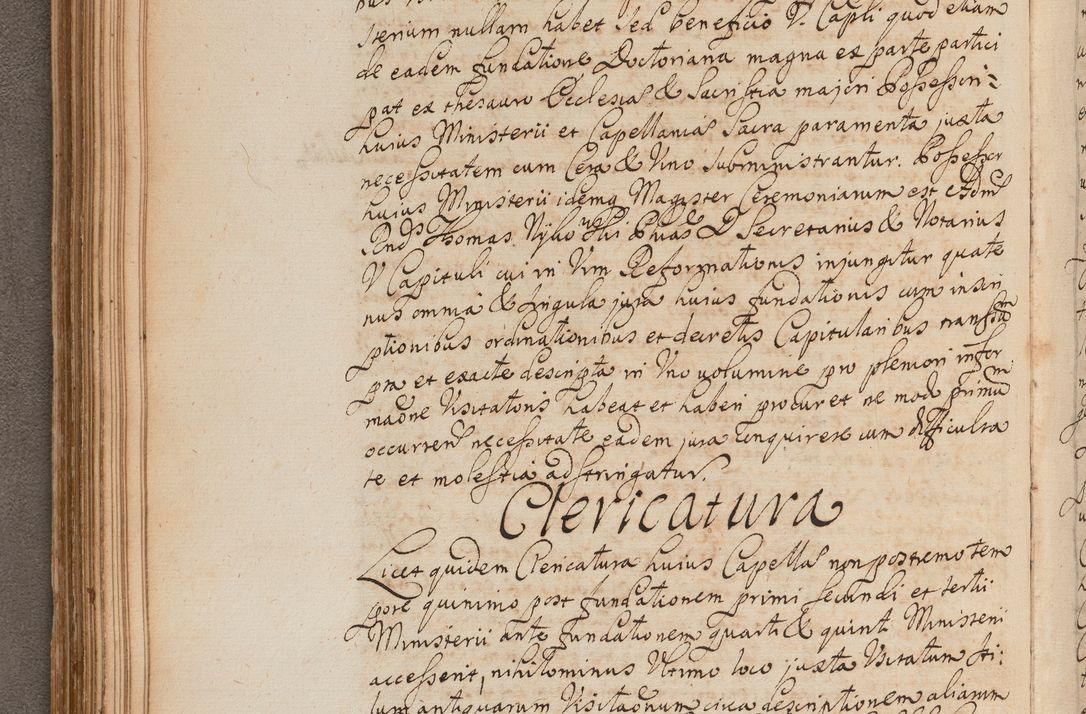 sterium nullam habet sed beneficio V. Capli quod etiam
de eadem fundatione Doctoriana magna ex parte partici
pat ex thesauro Ecclesiæ & Sacristia majori Possessori=
huius Ministerii et Capellaniæ Sacra paramenta juxta
necessitatem cum Cera & Vino subministrantur. Possessor
huius Ministerii idemq Magister Ceremoniarum est
Rnds Thomas D Secretarius & Notarius
V Capituli cui in Vim Reformationis injungitur quate
nus omnia & singula jura huius fundationis cum inscri
ptionibus ordinationibus et decretis Capitularibus transum
pta et exacte descripta in Uno volumine pro pleniori infor
maõne Visitatoris habeat et haberi procuret ne modo primum
occurrente necessitate eadem jura conquirere cum difficulta
te et molestia adstringatur.
Clericatura
Licet quidem Clericatura huius Capellæ non postremo tem
pore quinimo post fundationem primi secundi et tertii
Ministerii ante fundationem quarti & quinti Ministerii
accesserit, nihilominus Ultimo loco juxta Usitatum sti:
lum antiquarum Visitaõnum circa descriptionem aliarum